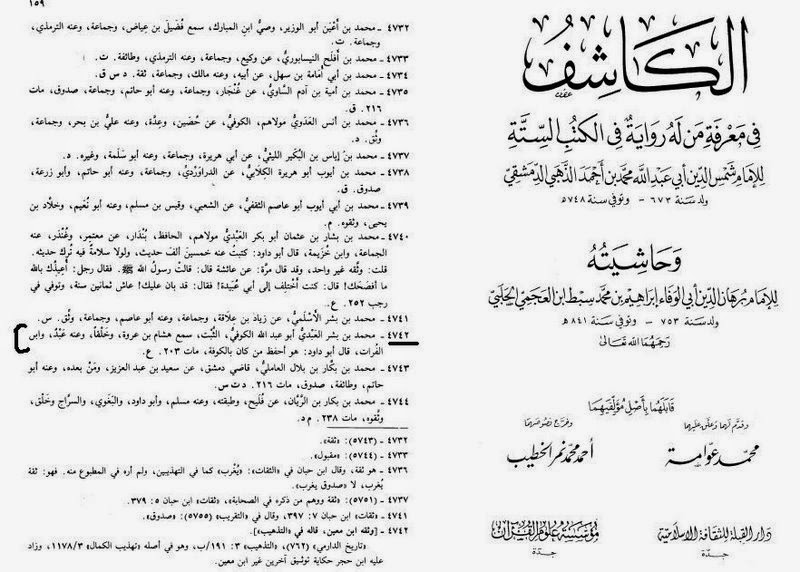 الكاشف
في معرفة من له رواية في الكتب الستة
للإمام شمس الدين أبي عبد الله محمد بن أحمد الذهبي الدمشقي
ولد سنة ٦٧٣ - وتوفي سنة ٧٤٨ه
وحاشيته
للإمام برهان الدين أبي الوفاء إبراهيم بن محمد سبط ابن العجمي الحلبي
ولد سنة ٧٥٣ - وتوفي سنة ٨٤١ه
رحمهما الله تعالى
قابلهما بأصل مؤلفيهما
وقدم لهما وعلق عليهما
محمد عوامة
وخرج نصوصهما
أحمد محمد نمر الخطيب
دار القبلة للثقافة الاسلامية
جدة
مؤسسة علوم القرآن
جدة
١٥٩
٤٧٣٢ - محمد بن أَعْيَن أبو الوزير، وصيُّ ابن المبارك، سمع فُضَيل بن عِياض، وجماعة، وعنه الترمذي،
وجماعة. ت.
٤٧٣٣ - محمد بن أَفلح النيسابوريُّ، عن وكيع، وجماعة، وعنه الترمذي، وطائفة. ت.
٤٧٣٤ - محمد بن أبي أُمامة بن سهل، عن أبيه، وعنه مالك، وجماعة، ثقة. د س ق.
٤٧٣٥ - محمد بن أمية بن آدم السَّاويُّ، عن غُنْجار، وجماعة، وعنه أبو حاتم، وجماعة، صدوق، مات
٢١٦. ق.
٤٧٣٦ - محمد بن أنس العَدَويُّ مولاهم، الكوفيُّ، عن حُصَين، وعِدَّة، وعنه عليُّ بن بحر، وجماعة،
وثِّق. د.
٤٧٣٧ - محمد بن إياس بن البُكَير الليثيُّ، عن أبي هريرة، وجماعة، وعنه أبو سَلَمة، وغيره. د.
٤٧٣٨ - محمد بن أيوب أبو هريرة الكلابيُّ، عن الدراوَرْديِّ، وجماعة، وعنه أبو حاتم، وأبو زرعة،
صدوق. ق.
٤٧٣٩ - محمد بن أبي أيوب أبو عاصم الثقفيُّ، عن الشعبي، وقيس بن مسلم، وعنه أبو نُعَيم، وخلَّاد بن
يحيى، وثقوه. م.
٤٧٤٠ - محمد بن بشار بن عثمان أبو بكر العَبْديُّ مولاهم، الحافظ، بُنْدَار، عن معتمر، وغُنْدَر، عنه
الجماعة، وابن خُزيمة، قال أبو داود: كتبتُ عنه خمسين ألف حديث، ولولا سلامةٌ فيه تُرك حديثه.
قلت: وثَّقه غير واحد، وقد قال مرَّة: عن عائشة قال: قالتْ رسولُ الله ﷺ. فقال رجل: أُعيذُك بالله
ما أفضحَك! قال: كنت أَختلِف إلى أبي عُبيدة! فقال: قد بان عليك! عاش ثمانين سنة، وتوفي في
رجب ٢٥٢. ع.
٤٧٤١ - محمد بن بشر الأَسْلَميُّ، عن زياد بن علاقة، وجماعة، وعنه أبو عاصم، وجماعة، وثِّق. س.
٤٧٤٢ - محمد بن بشر العَبْديُّ أبو عبد الله الكوفيُّ، الثَّبْت، سمع هشام بن عروة، وخَلْقاً، وعنه عَبْدٌ، وابن
الفُرات، قال أبو داود: هو أحفظ من كان بالكوفة، مات ٢٠٣. ع.
٤٧٤٣ - محمد بن بكَّار بن بلال العامليُّ، قاضي دمشق، عن سعيد بن عبد العزيز، ومَنْ بعده، وعنه أبو
حاتم، وطائفة، صدوق، مات ٢١٦. د ت س.
٤٧٤٤ - محمد بن بكار بن الرَّيَّان، عن فُلَيح، وطبقته، وعنه مسلم، وأبو داود، والبَغَوي، والسرَّاج وخَلْق،
وثَّقوه، مات ٢٣٨. م د.
٤٧٣٢ - (٥٧٤٣): «ثقة».
٤٧٣٣ - (٥٧٤٤): «مقبول».
٤٧٣٦ - هو ثقة، وقال ابن حبان في «الثقات»: «يُغرب» كما في التهذيبين، ولم أره في المطبوع منه. فهو: ثقة
يُغرب، لا «صدوق يغرب».
٤٧٣٧ - (٥٧٥١): «ثقة ووهم من ذكره في الصحابة»، «ثقات» ابن حبان ٥: ٣٧٩.
٤٧٤١ - «ثقات» ابن حبان ٧: ٣٩٧، وقال في «التقريب» (٥٧٥٥) «صدوق».
٤٧٤٢ - [وثقه ابن معين، قاله في «التذهيب»].
«تاريخ الدارمي» (٧٦٢)، «التذهيب» ٣: ١٩١/ب، وهو في أصله «تهذيب الكمال» ١١٧٨/٣، وزاد
عليه ابن حجر حكاية توثيق آخرين غير ابن معين.